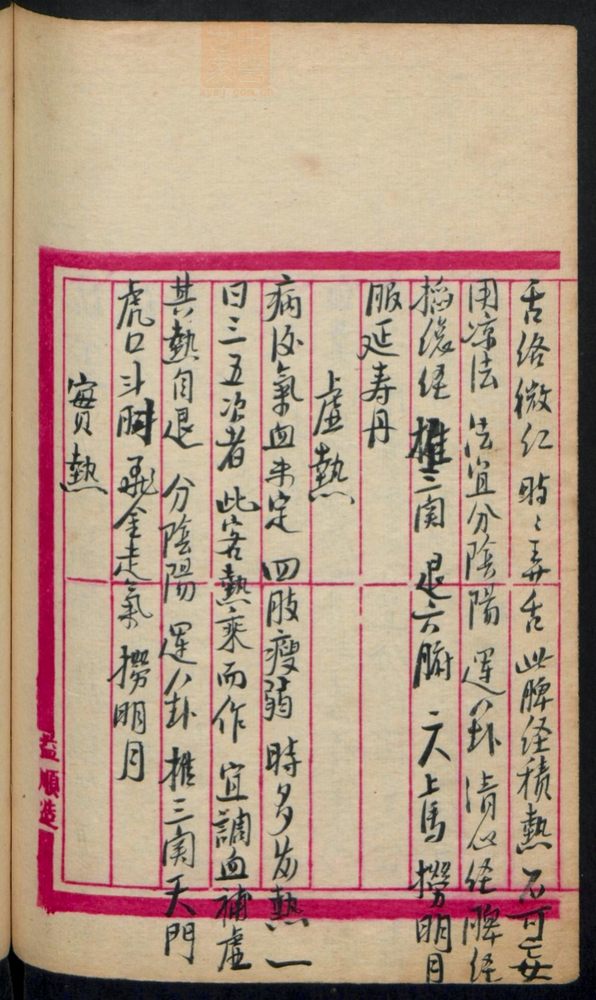 舌絡微紅 時々弄舌 此脾経積熱 不可妄
用凉法 法宜分陰陽 運八卦 清心经 脾经
掐後谿 推三関 退六腑 二人上馬 撈明月
服延寿丹
虚熱
病後氣血未定 四肢瘦弱 時多发熱 一
日三五次者 此客熱乘而作 宜調血補虛
其熱自退 分陰陽 運八卦 推三関 天門
虎口 斗肘 飛金走氣 撈明月
實熱
益順造